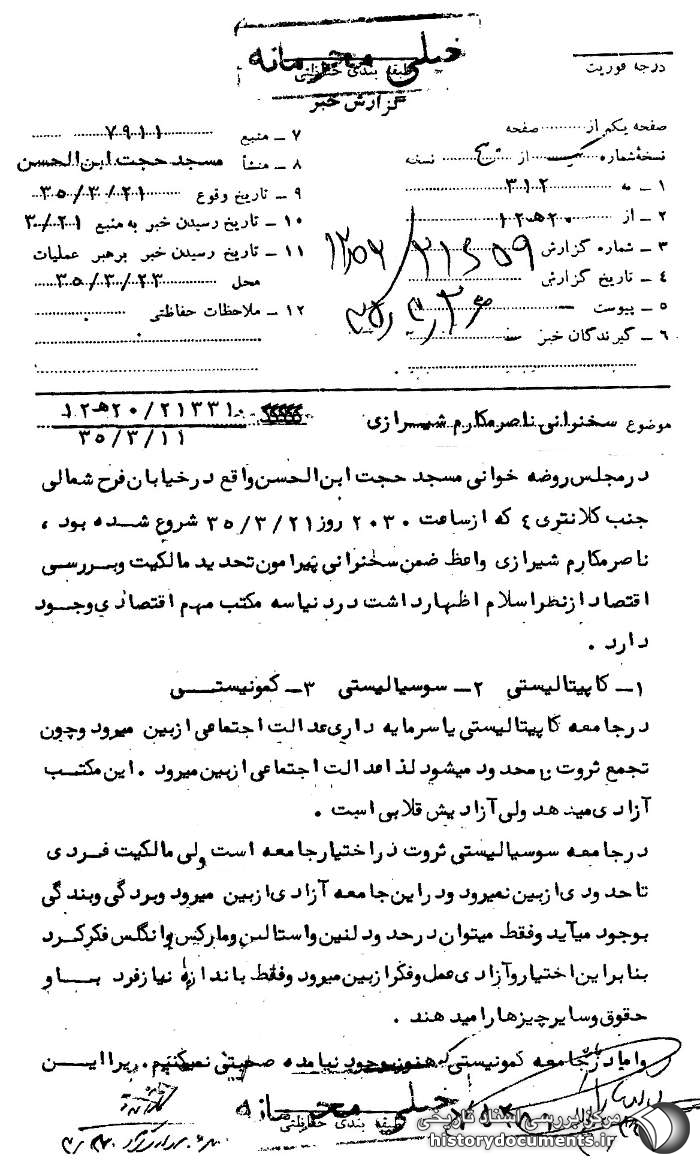 خیلی محرمانه
طبقه بندی حفاظتی
گزارش خبر
درجه فوریت
صفحه یکم از صفحه
نسخهٔ شماره یک از نسخه
۱ ـ به ۳۱۲
۲ ـ از ۲۰ هـ ۱۲
۳ ـ شماره گزارش
۴ ـ تاریخ گزارش
۵ ـ پیوست
۶ ـ گیرندگان خبر
۷ ـ منبع ۷۹۱۱
۸ ـ منشأ مسجد حجت ابن الحسن
۹ ـ تاریخ وقوع ۳۵/۳/۲۱
۱۰ ـ تاریخ رسیدن خبر به منبع ۳/۲۱
۱۱ ـ تاریخ رسیدن خبر برهبر عملیات
محل ۳۵/۳/۲۳
۱۲ ـ ملاحظات حفاظتی
موضوع سخنرانی ناصر مکارم شیرازی
۲۱۳۳۱/۲۰ هـ ۱۲
۳۵/۳/۱۱
در مجلس روضه خوانی مسجد حجت ابن الحسن واقع در خیابان فرح شمالی
جنب کلانتری ٤ که از ساعت ۲۰۳۰ روز ۳۵/۳/۲۱ شروع شده بود ،
ناصر مکارم شیرازی واعظ ضمن سخنرانی پیرامون تحدید مالکیت و بررسی
اقتصاد از نظر اسلام اظهار داشت در دنیا سه مکتب مهم اقتصادی وجود
دارد .
۱ـ کاپیتالیستی ۲ـ سوسیالیستی ۳ـ کمونیستی
در جامعه کاپیتالیستی یا سرمایه داری عدالت اجتماعی از بین میرود و چون
تجمع ثروت نا محدود میشود لذا عدالت اجتماعی از بین میرود . این مکتب
آزادی میدهد ولی آزادیش قلابی است .
در جامعه سوسیالیستی ثروت در اختیار جامعه است ولی مالکیت فردی
تا حدودی از بین نمیرود و در این جامعه آزادی از بین میرود و بردگی و بندگی
بوجود میآید و فقط میتوان در حدود لنین و استالین و مارکس و انگلس فکر کرد
بنابراین اختیار و آزادی عمل و فکر از بین میرود و فقط باندازه نیاز فرد باو
حقوق و سایر چیزها را میدهند .
و اما در جامعه کمونیستی که هنوز بوجود نیامده صحبتی نمیکنیم . زیرا این
خیلی محرمانه
طبقه بندی حفاظتی
مرکز بررسی اسناد تاریخی
historydocuments.ir